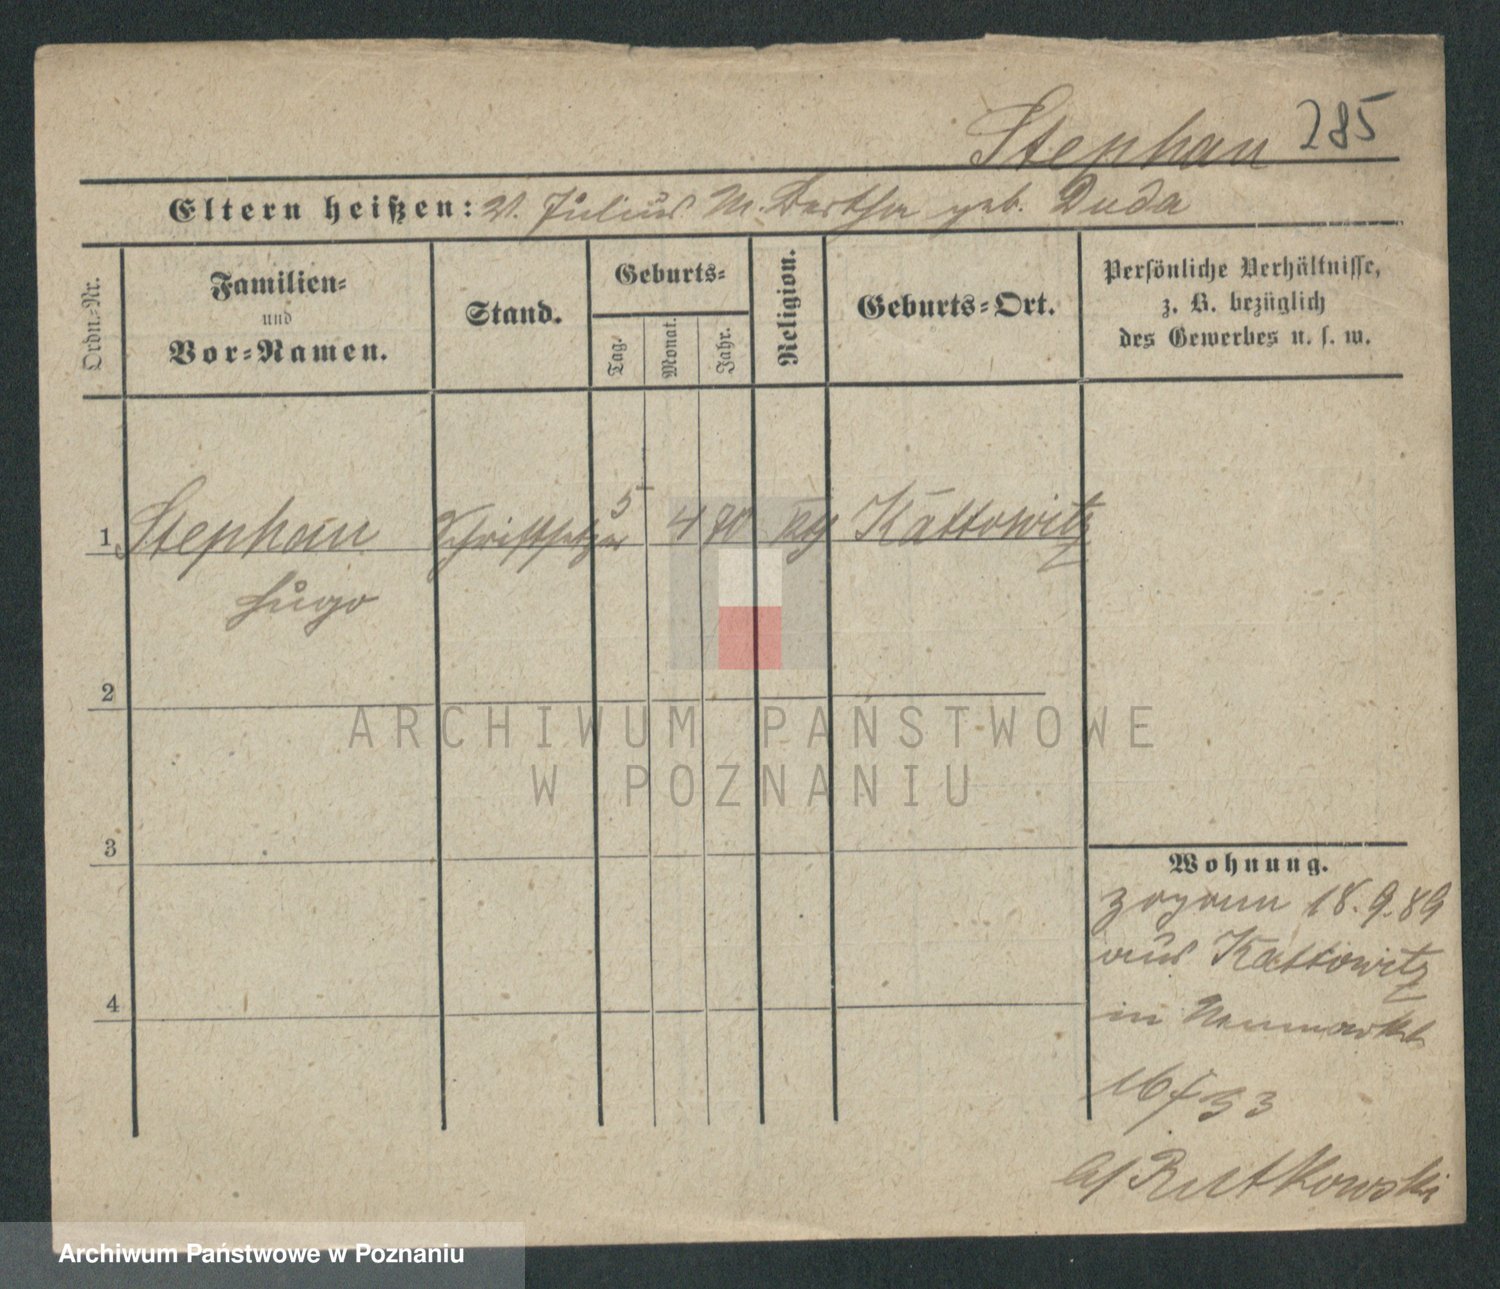 Stephan 285
Eltern heißen: V. Julius M. Bertha geb. Duda
Ordn.-Nr.
Familien-
und
Vor-Namen.
Stand.
Geburts-
Tag.
Monat.
Jahr.
Religion.
Geburts-Ort.
Persönliche Verhältnisse,
z. B. bezüglich
des Gewerbes u. s. w.
1 Stephan Schriftsetzer 5 4 70 kth Kattowitz
Hugo
2
3
4
Wohnung.
zogenn 18.9.89
aus Kattowitz
in Neumarkt
16/33
b/ Rutkowski
ARCHIWUM PAŃSTWOWE
W POZNANIU
Archiwum Państwowe w Poznaniu